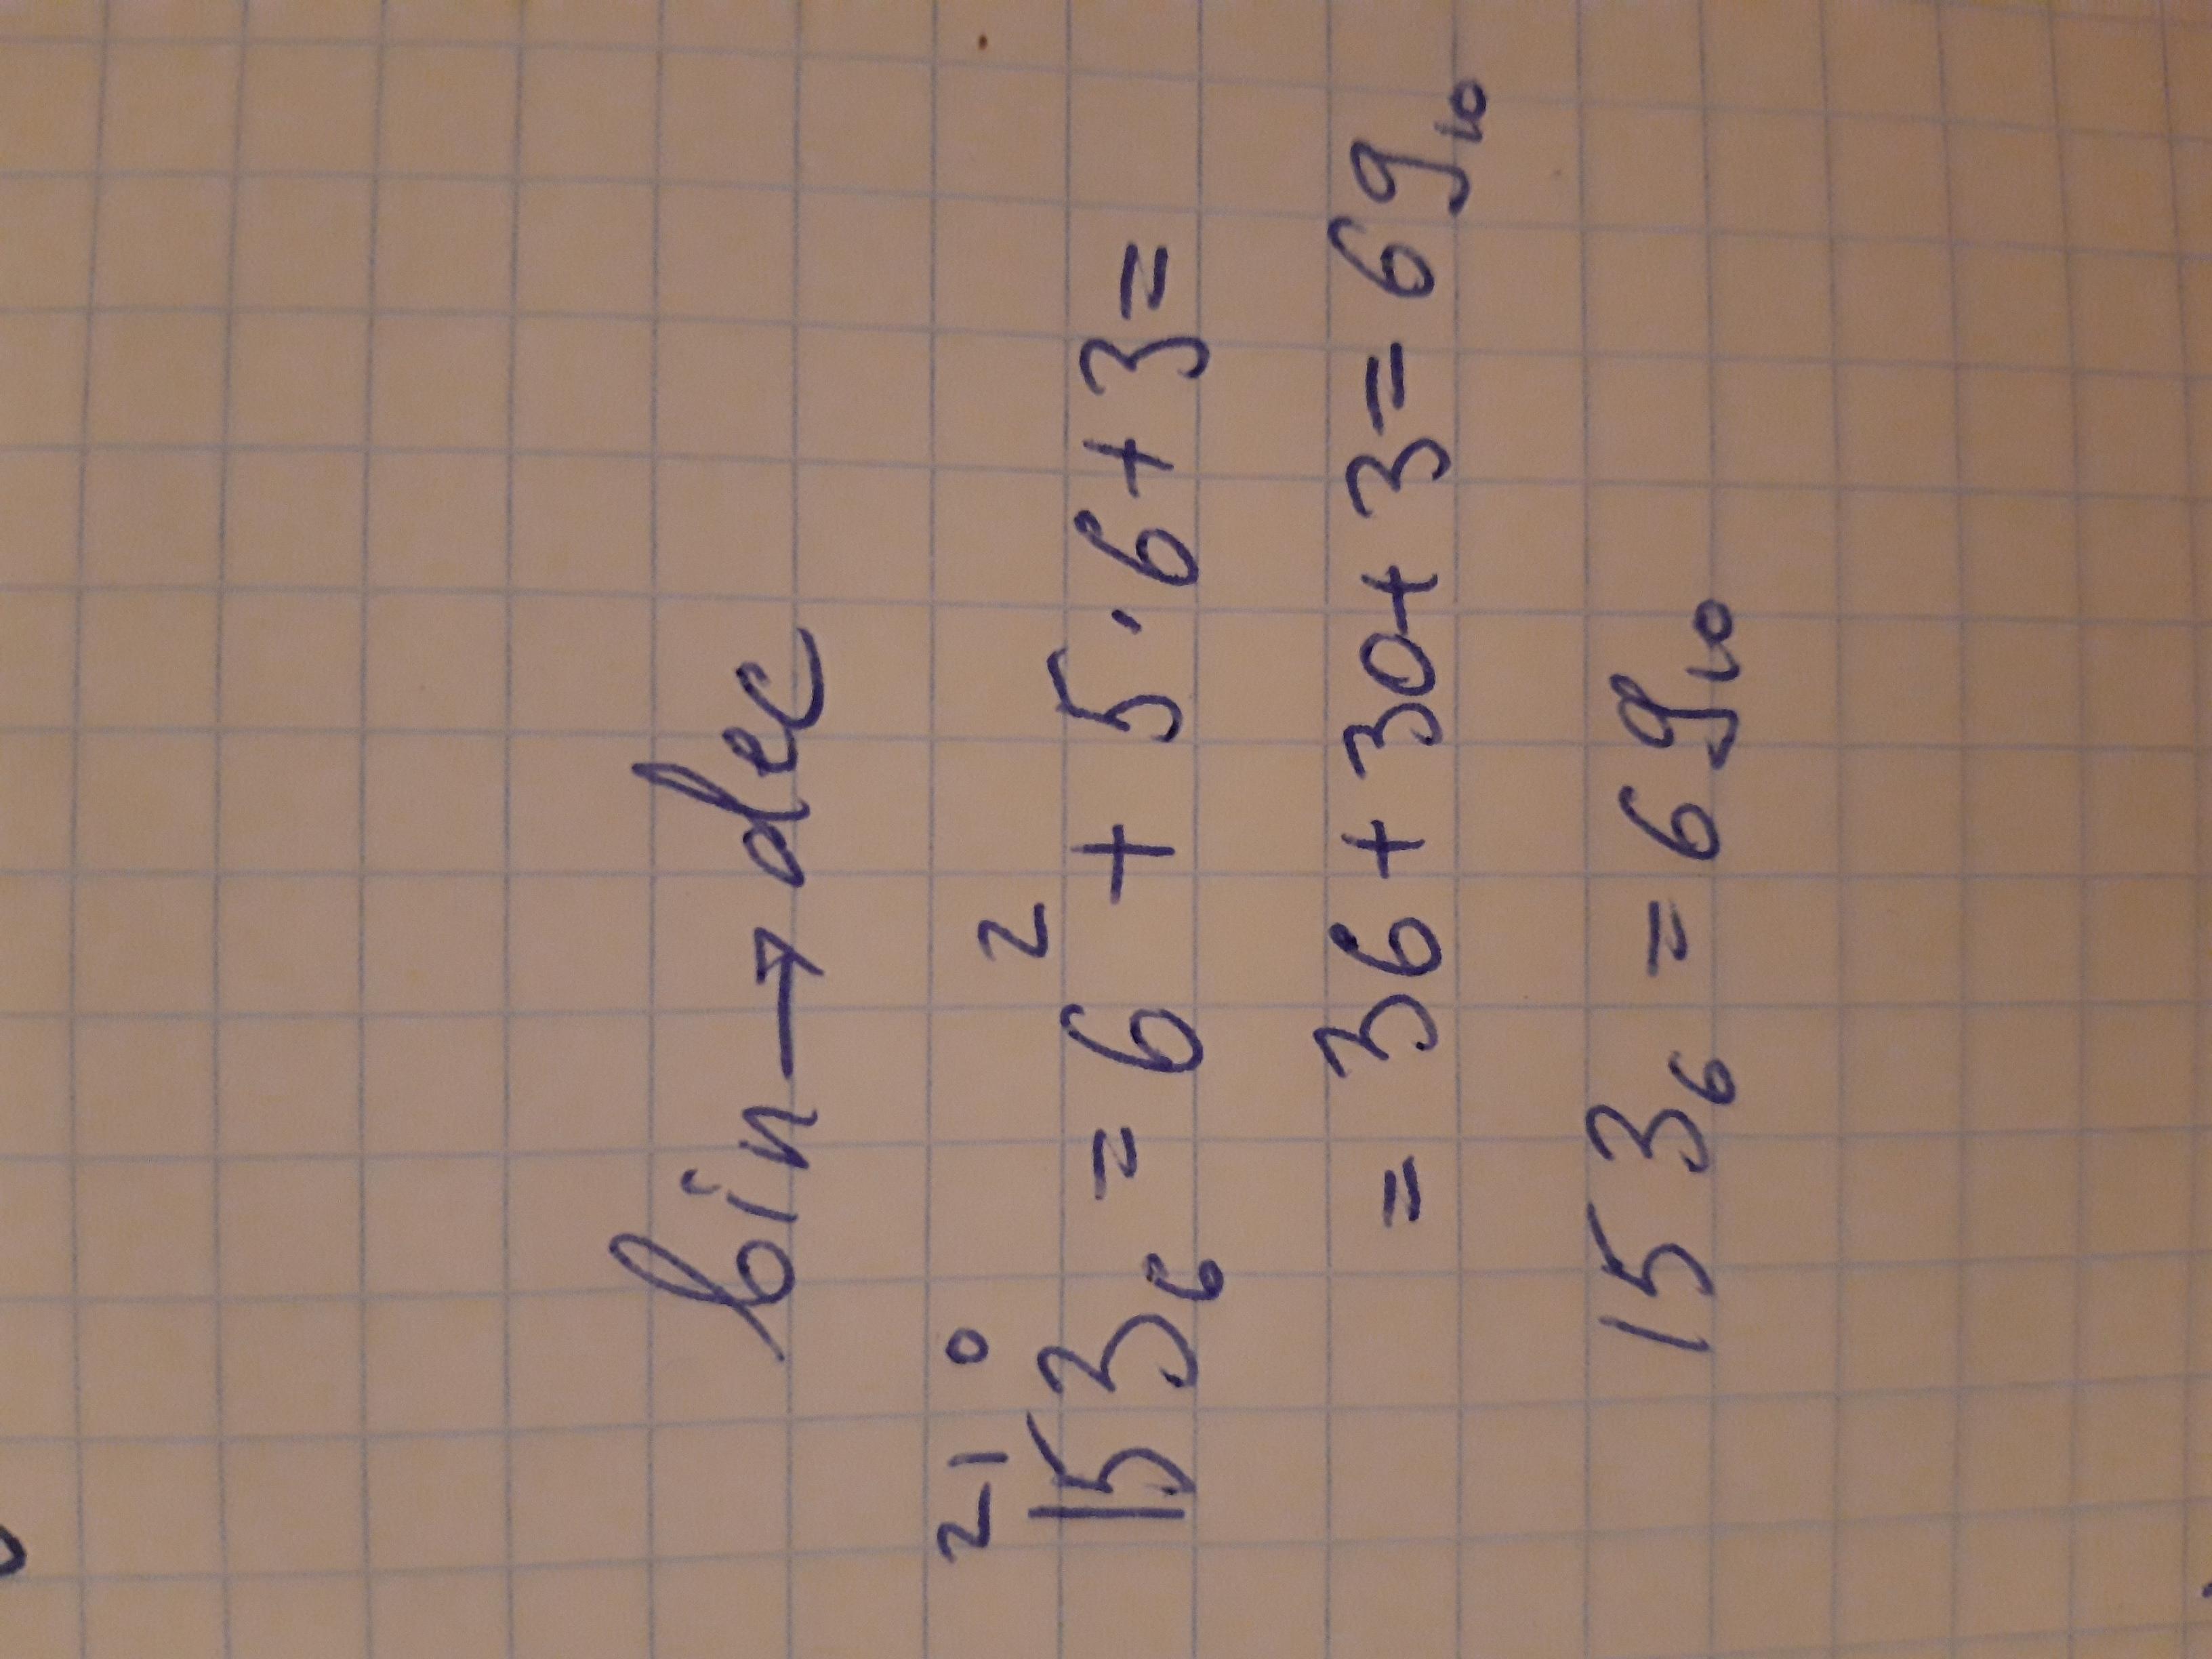 bin→dec
2 1 0
153₆ = 6² + 5·6+3=
= 36+30+3=69₁₀
153₆ = 69₁₀